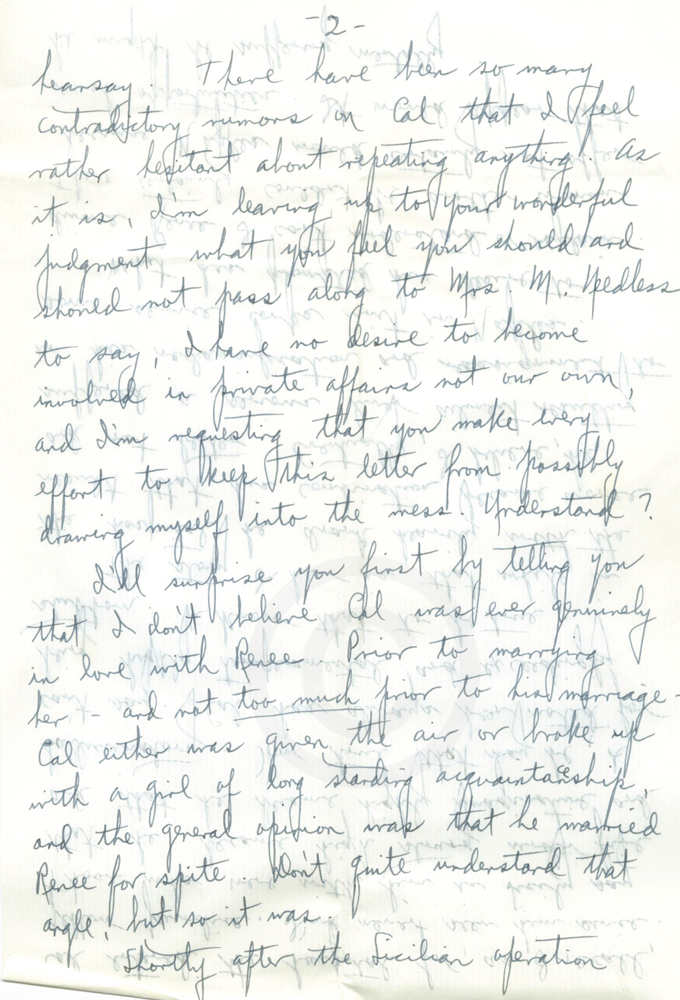 -2-
hearsay. There have been so many
contradictory rumors on Cal that I feel
rather hesitant about repeating anything. As
it is, I'm leaving up to your wonderful
judgment what you feel you should and
should not pass along to Mrs. M. Needless
to say, I have no desire to become
involved in private affairs not our own,
and I'm requesting that you make every
effort to keep this letter from possibly
drawing myself into the mess. Understand?
I'll surprise you first by telling you
that I don't believe Cal was ever genuinely
in love with Renee. Prior to marrying
her - and not too much prior to his marriage -
Cal either was given the air or broke up
with a girl of long standing acquaintanceship,
and the general opinion was that he married
Renee for spite. Don't quite understand that
angle, but so it was.
Shortly after the Sicilian operation